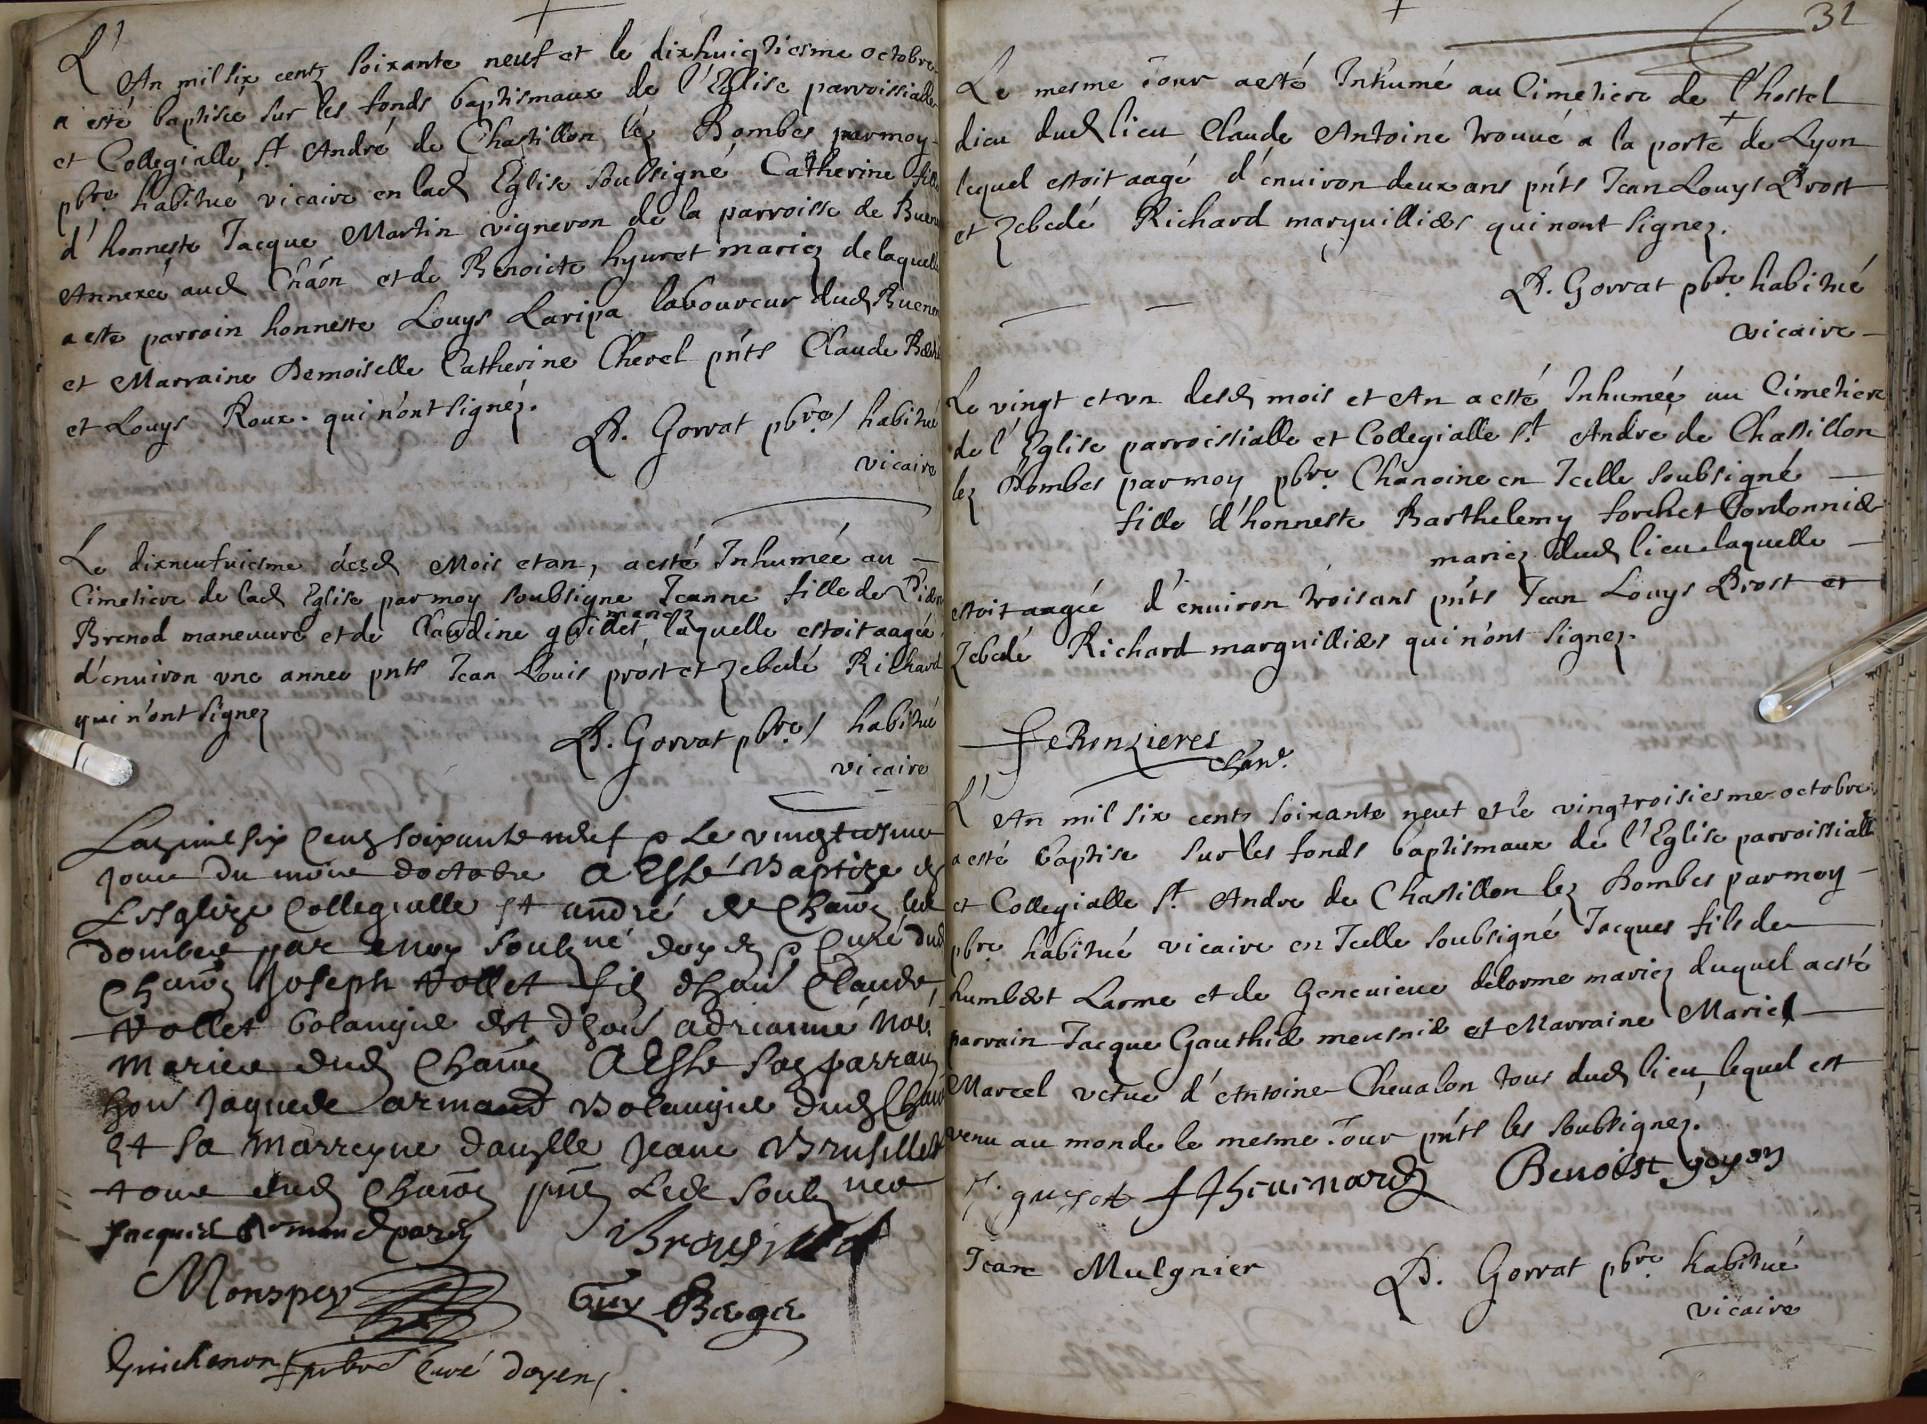 L'An mil six centz soixante neuf et le dixhuigtiesme octobre
a esté baptisée sur les fonds baptismaux de l'Eglise parroissialle
et Collegialle St André de Chastillon lez Dombes par moy
pbre habitué vicaire en lad Eglise soubsigné Catherine fille
d'honneste Jacque Martin vigneron de la parroisse de Buenen
Annexée aud Cháon et de Benoicte hyuret mariez de laquelle
a esté parroin honneste Louys Laripa laboureur dud Buenen
et Marraine Demoiselle Catherine Cherel pnts Claude
et Louys Roux qui n'ont signéz.
D. Gorrat pbre habitué
vicaire
Le dixneufuiesme desd Mois et an, a esté Inhumée au
Cimetiere de lad Eglise par moy soubsigne Jeanne fille de
Brenod maneuure et de Claudine guillet mariez, laquelle estoit aagée
d'enuiron une annee pnts Jean Louis prost et Zebedé Richard
qui n'ont signez
D. Gorrat pbre habitué
vicaire
Lan mil six cens soixante neuf & Le vingtiesme
jour du moys doctobre A Esté Baptize en
Lesglize Collegialle st andré de Chaon les
dombes par moy soubné doyen & Curé dud
Chaon Joseph vollet fils dhon Claude
vollet bolangié et dhon adrianne
Mariez dud Chaon A Esté son parrain
hon Jaques armand Bolangié dud Chaon
Et sa marreyne dauylle Jeane Brusillet
tous dud Chaon pnts Led soubnez
Jacques Armand parin
Brousillet
Monspey
Guy Bergé
Guichenon pbre Curé doyen
31
Le mesme Jour a esté Inhumé au Cimetiere de l'hostel
dieu dud lieu Claude Antoine trouué a la porte de Lyon
lequel estoit aagé d'enuiron deux ans pnts Jean Louys Prost
et Zebedé Richard marguilliers qui nont signez.
D. Gorrat pbre habitué
vicaire
Le vingt et un desd mois et An a esté Inhumée au Cimetiere
de l'Eglise parroissialle et Collegialle St Andre de Chastillon
lez Dombes par moy pbre Chanoine en Icelle soubsigné
fille d'honneste Barthelemy forchet Cordonnier
mariez dud lieu laquelle
estoit aagée d'enuiron trois ans pnts Jean Louys Prost et
Zebedé Richard marguilliers qui n'ont signez.
feRonzieres
chan.
L'An mil six centz soixante neuf et le vingtroisiesme octobre
a esté baptise sur les fonds baptismaux de l'Eglise parroissialle
et Collegialle St Andre de Chastillon lez Dombes par moy
pbre habitué vicaire en Icelle soubsigné Jacques fils de
humbert Larme et de Geneuieue delorme mariez duquel a esté
parrain Jacque Gauthier meusnier et Marraine Marie
Marcel vefue d'Antoine Cheualon tous dud lieu, lequel est
venu au monde le mesme Jour pnts les soubsignez.
guyot f Theuenard Benoist goyon
Jean Mulgnier
D. Gorrat pbre habitué
vicaire